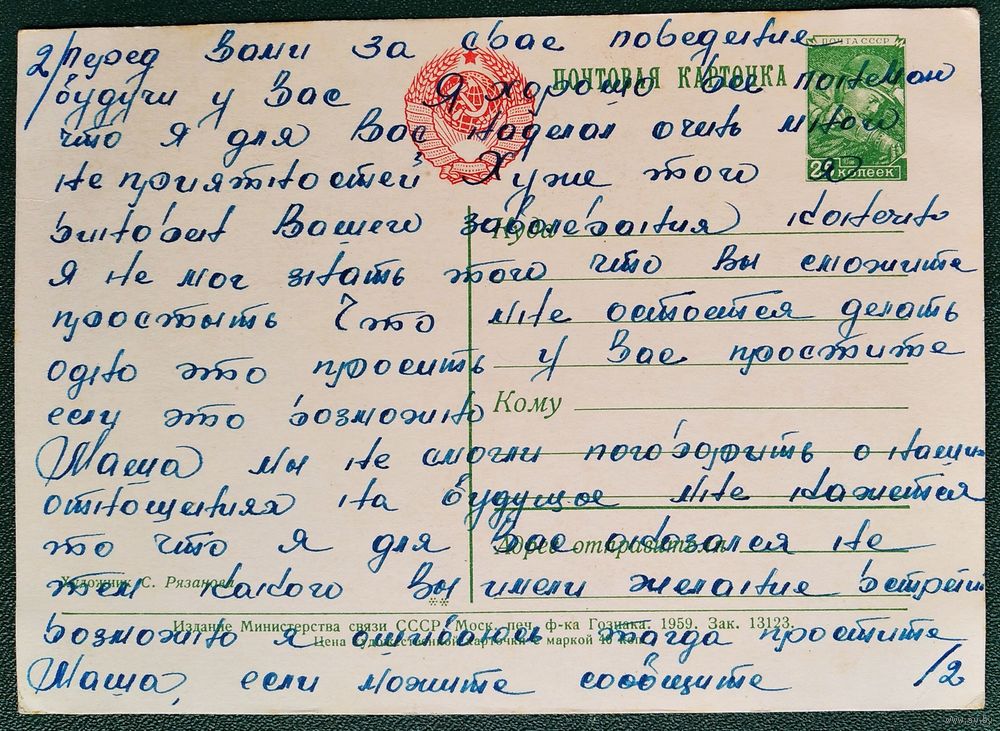 ПОЧТА СССР
ПОЧТОВАЯ КАРТОЧКА
20 КОПЕЕК
2/ перед Вами за свае поведения
будучи у Вас Я хорошо Все понемаю
что я для Вас наделал очинь много
не приятностей Хуже того я
винован Вашего заболевания конечно
Я не мог знать того что вы сможите
простыть Что мне остоется делать
одно это просить у Вас простите
если это возможно
Маша мы не смогли поговорить о наших
отношениях на будущое мне кажется
то что я для Вас оказался не
тем какого Вы имели желание встретить
возможно я ошибаюсь тогда простите
Маша, если можите сообщите /2
Куда
Кому
Адрес отправителя
Художник С. Рязанова
Издание Министерства связи СССР. Моск. печ. ф-ка Гознака. 1959. Зак. 13123.
Цена художественной карточки с маркой 40 коп.
www.ay.by